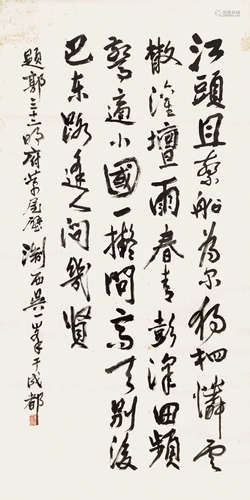 江頭且繫船為尔獨相憐雲
散灌壇雨春青彭澤田頻
驚適小國一擬問高天別後
巴東路逢人問幾賢
題郭三十二明府茅屋壁 石吳一峯于成都